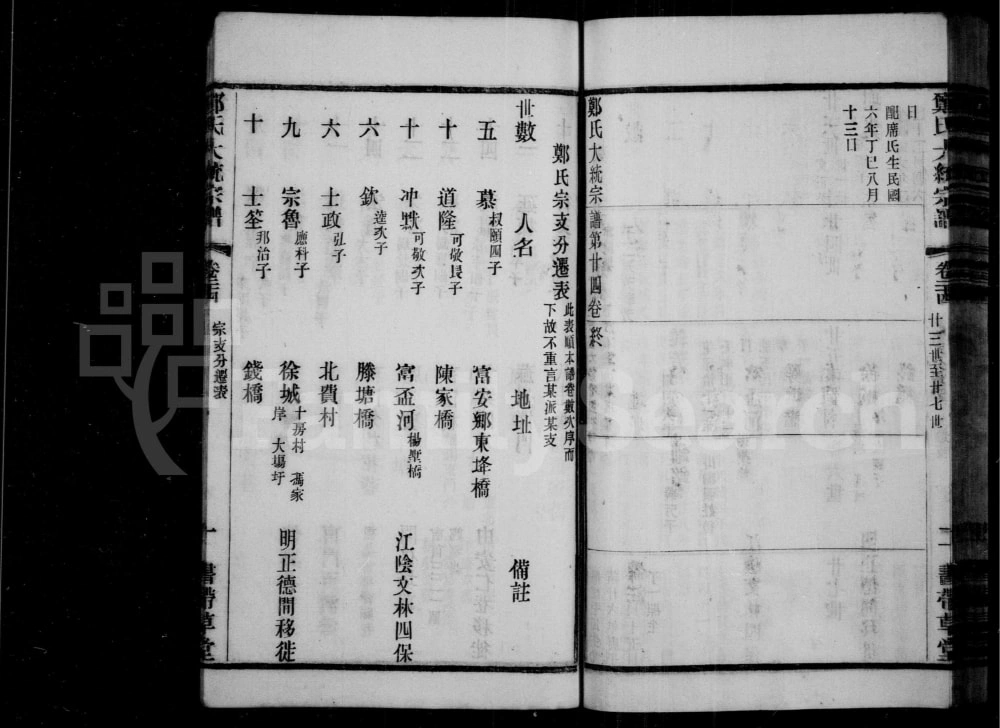 鄭氏大統宗譜
卷二十四
廿三世至廿七世
書帶草堂
日
配席氏生民國
六年丁巳八月
十三日
鄭氏大統宗譜第廿四卷終
鄭氏宗支分遷表
此表順本譜卷數次序而
下故不重言某派某支
世數 人名 地址 備註
五 慕 叔頤四子 富安鄉東埄橋
十一 道隆 可敬長子 陳家橋
十二 冲默 可敬次子 富沍河 楊墅橋 江陰文林四保
六 欽 逵次子 滕塘橋
六 士政 弘子 北費村
九 宗魯 應科子 徐城 十房村 馮家岸 大塲圩 明正德間移徙
十 士筌 邦治子 錢橋
鄭氏大統宗譜
宗支分遷表
書帶草堂
FamilySearch